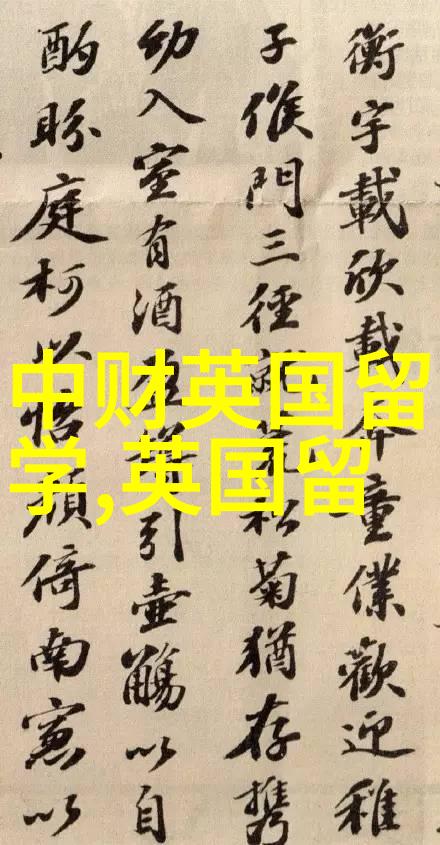 衡宇載欣載奔童僕歡迎稚
子候門三徑就荒松菊猶存携
幼入室有酒盈樽引壺觴以自
酌眄庭柯以怡顏倚南窓以
中财英国留
学,英国留